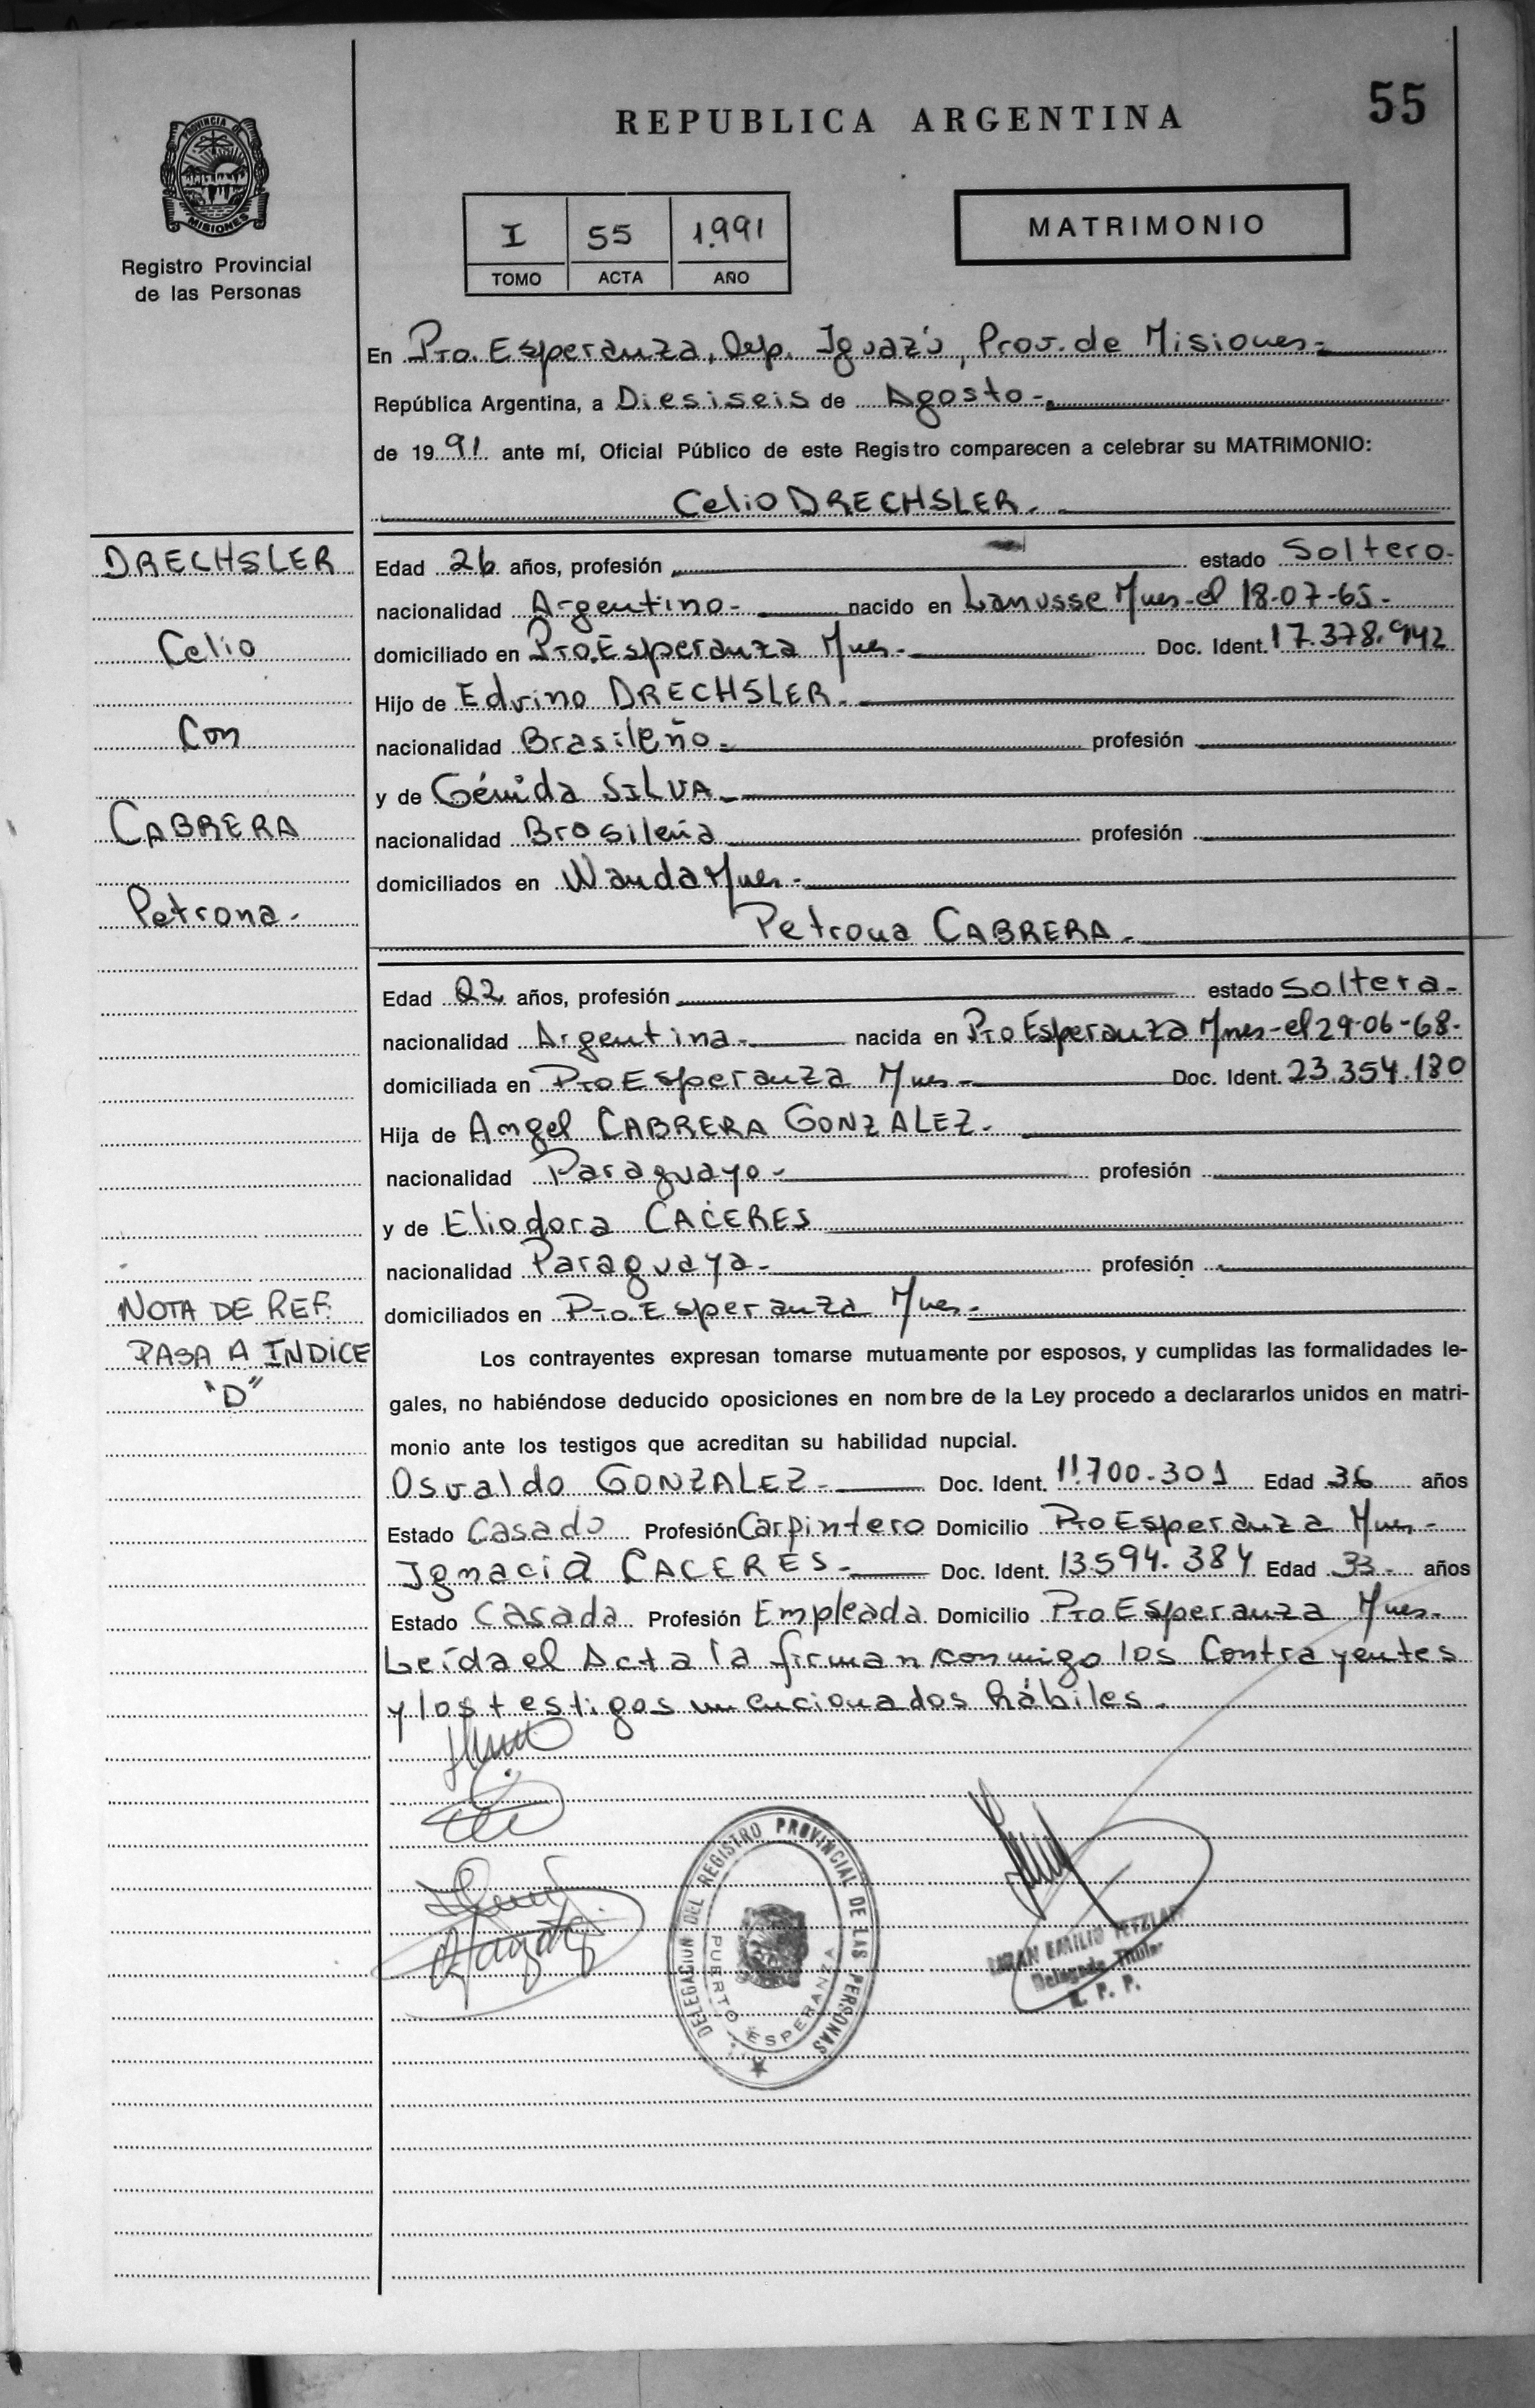 55
REPUBLICA ARGENTINA
PROVINCIA DE
MISIONES
Registro Provincial
de las Personas
I 55 1.991
TOMO ACTA AÑO
MATRIMONIO
En Pto. Esperanza, Dep. Iguazú, Prov. de Misiones-
República Argentina, a Diesiseis de Agosto-
de 1991 ante mí, Oficial Público de este Registro comparecen a celebrar su MATRIMONIO:
Celio DRECHSLER.
DRECHSLER
Celio
Con
CABRERA
Petrona-
Edad 26 años, profesión estado Soltero-
nacionalidad Argentino- nacido en Lanusse Mnes-el 18-07-65-
domiciliado en Pto.Esperanza Mnes- Doc. Ident. 17.378.942
Hijo de Edvino DRECHSLER.
nacionalidad Brasileño- profesión
y de SILVA-
nacionalidad Brasileña profesión
domiciliados en Wanda Mnes-
Petrona CABRERA-
Edad 22 años, profesión estado Soltera-
nacionalidad Argentina- nacida en Pto Esperanza Mnes-el 29-06-68-
domiciliada en Pto Esperanza Mnes- Doc. Ident. 23.354.180
Hija de Angel CABRERA GONZALEZ-
nacionalidad Paraguayo- profesión
y de Eliodora CACERES
nacionalidad Paraguaya- profesión
domiciliados en Pto.Esperanza Mnes-
NOTA DE REF.
PASA A INDICE
"D"
Los contrayentes expresan tomarse mutuamente por esposos, y cumplidas las formalidades le-
gales, no habiéndose deducido oposiciones en nombre de la Ley procedo a declararlos unidos en matri-
monio ante los testigos que acreditan su habilidad nupcial.
Osvaldo GONZALEZ- Doc. Ident. 11.700.301 Edad 36 años
Estado Casado Profesión Carpintero Domicilio Pto Esperanza Mnes-
Ignacia CACERES- Doc. Ident. 13.594.384 Edad 33- años
Estado Casada Profesión Empleada Domicilio Pto Esperanza Mnes-
Leída el Acta la firman conmigo los Contrayentes
y los testigos mencionados hábiles.
DELEGACION DEL REGISTRO PROVINCIAL DE LAS PERSONAS
PUERTO ESPERANZA
EMILIO
Delegado Titular
R. P. P.